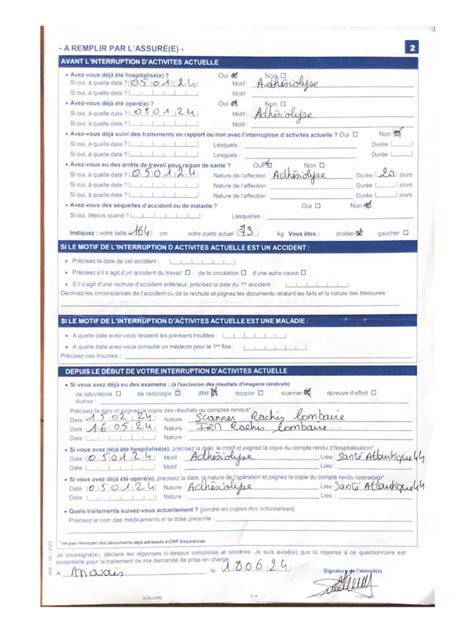 - A REMPLIR PAR L'ASSURÉ(E) - 2
AVANT L'INTERRUPTION D'ACTIVITES ACTUELLE
• Avez-vous déjà été hospitalisé(e) ? Oui Non
Si oui, à quelle date ? 05.01.24 Motif : Adhésiolyse
Si oui, à quelle date ? Motif :
• Avez-vous déjà été opéré(e) ? Oui Non
Si oui, à quelle date ? 05.01.24 Motif : Adhésiolyse
Si oui, à quelle date ? Motif :
• Avez-vous déjà suivi des traitements en rapport ou non avec l'interruption d'activités actuelle ? Oui Non
Si oui, à quelle date ? Lesquels : Durée
Si oui, à quelle date ? Lesquels : Durée
• Avez-vous eu des arrêts de travail pour raison de santé ? Oui Non
Si oui, à quelle date ? 05.01.24 Nature de l'affection : Adhésiolyse Durée 20 jours
Si oui, à quelle date ? Nature de l'affection : Durée jours
• Avez-vous des séquelles d'accident ou de maladie ? Oui Non
Si oui, depuis quand ? Lesquelles :
Indiquez : votre taille 164 cm votre poids actuel 73 kg Vous êtes : droitier gaucher
SI LE MOTIF DE L'INTERRUPTION D'ACTIVITES ACTUELLE EST UN ACCIDENT :
• Précisez la date de cet accident :
• Précisez s'il s'agit d'un accident du travail de la circulation d'une autre cause
• S'il s'agit d'une rechute d'accident antérieur, précisez la date du 1er accident :
Décrivez les circonstances de l'accident ou de la rechute et joignez les documents relatant les faits et la nature des blessures :
SI LE MOTIF DE L'INTERRUPTION D'ACTIVITES ACTUELLE EST UNE MALADIE :
• A quelle date avez-vous ressenti les premiers troubles :
• A quelle date avez-vous consulté un médecin pour la 1ère fois :
Précisez ces troubles :
DEPUIS LE DÉBUT DE VOTRE INTERRUPTION D'ACTIVITÉS ACTUELLE
• Si vous avez déjà eu des examens : (à l'exclusion des résultats d'imagerie cérébrale)
de laboratoire de radiologie IRM doppler scanner épreuve d'effort
Autres :
Précisez la date et joignez la copie des résultats ou comptes rendus*
Date 15.02.24 Nature : Scanner Rachis lombaire
Date 16.05.24 Nature : IRM Rachis lombaire
• Si vous avez déjà été hospitalisé(e), précisez la date, le motif et joignez la copie du compte rendu d'hospitalisation*
Date 05.01.24 Motif : Adhésiolyse Lieu : Santé Atlantique 44
Date Motif Lieu
• Si vous avez déjà été opéré(e), précisez la date, la nature de l'opération et joignez la copie du compte rendu opératoire*
Date 05.01.24 Nature : Adhésiolyse Lieu : Santé Atlantique 44
Date Nature Lieu
• Quels traitements suivez-vous actuellement ? (joindre les copies des ordonnances)
Précisez le nom des médicaments et la dose prescrite :
*ne pas renvoyer des documents déjà adressés à CNP Assurances
Je soussigné(e), déclare les réponses ci-dessus complètes et sincères. Je suis avisé(e) que la réponse à ce questionnaire est
essentielle pour le traitement de ma demande de prise en charge.
A le 18.06.24 Signature de l'assuré(e)